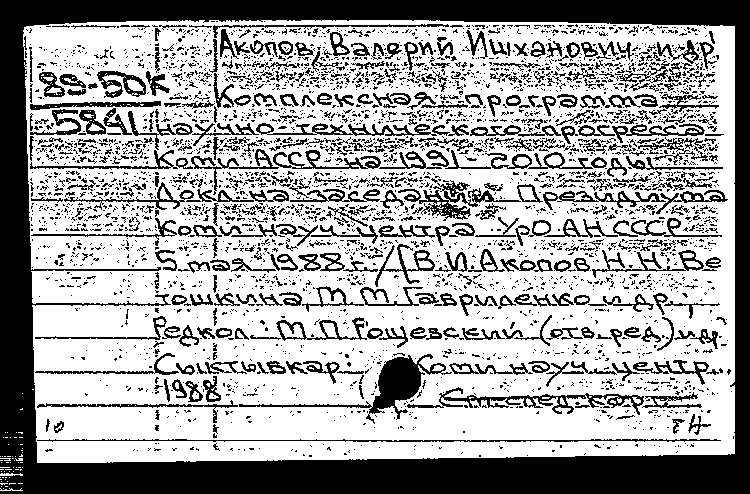 Акопов, Валерий Ишханович и др
89-50К
Комплексная программа
5841
научно технического прогресса
Коми АССР на 1991-2010 годы
Докл на заседании Президиума
Коми науч. центра УрО АН СССР
5 мая 1988 г. / [В. И. Акопов, Н. Н. Ве
тошкина, М. М. Гавриленко и др.;
Редкол.: М. П. Рощевский (отв. ред) и др.
Сыктывкар: Коми науч. центр...
1988
См. след. карт.
10